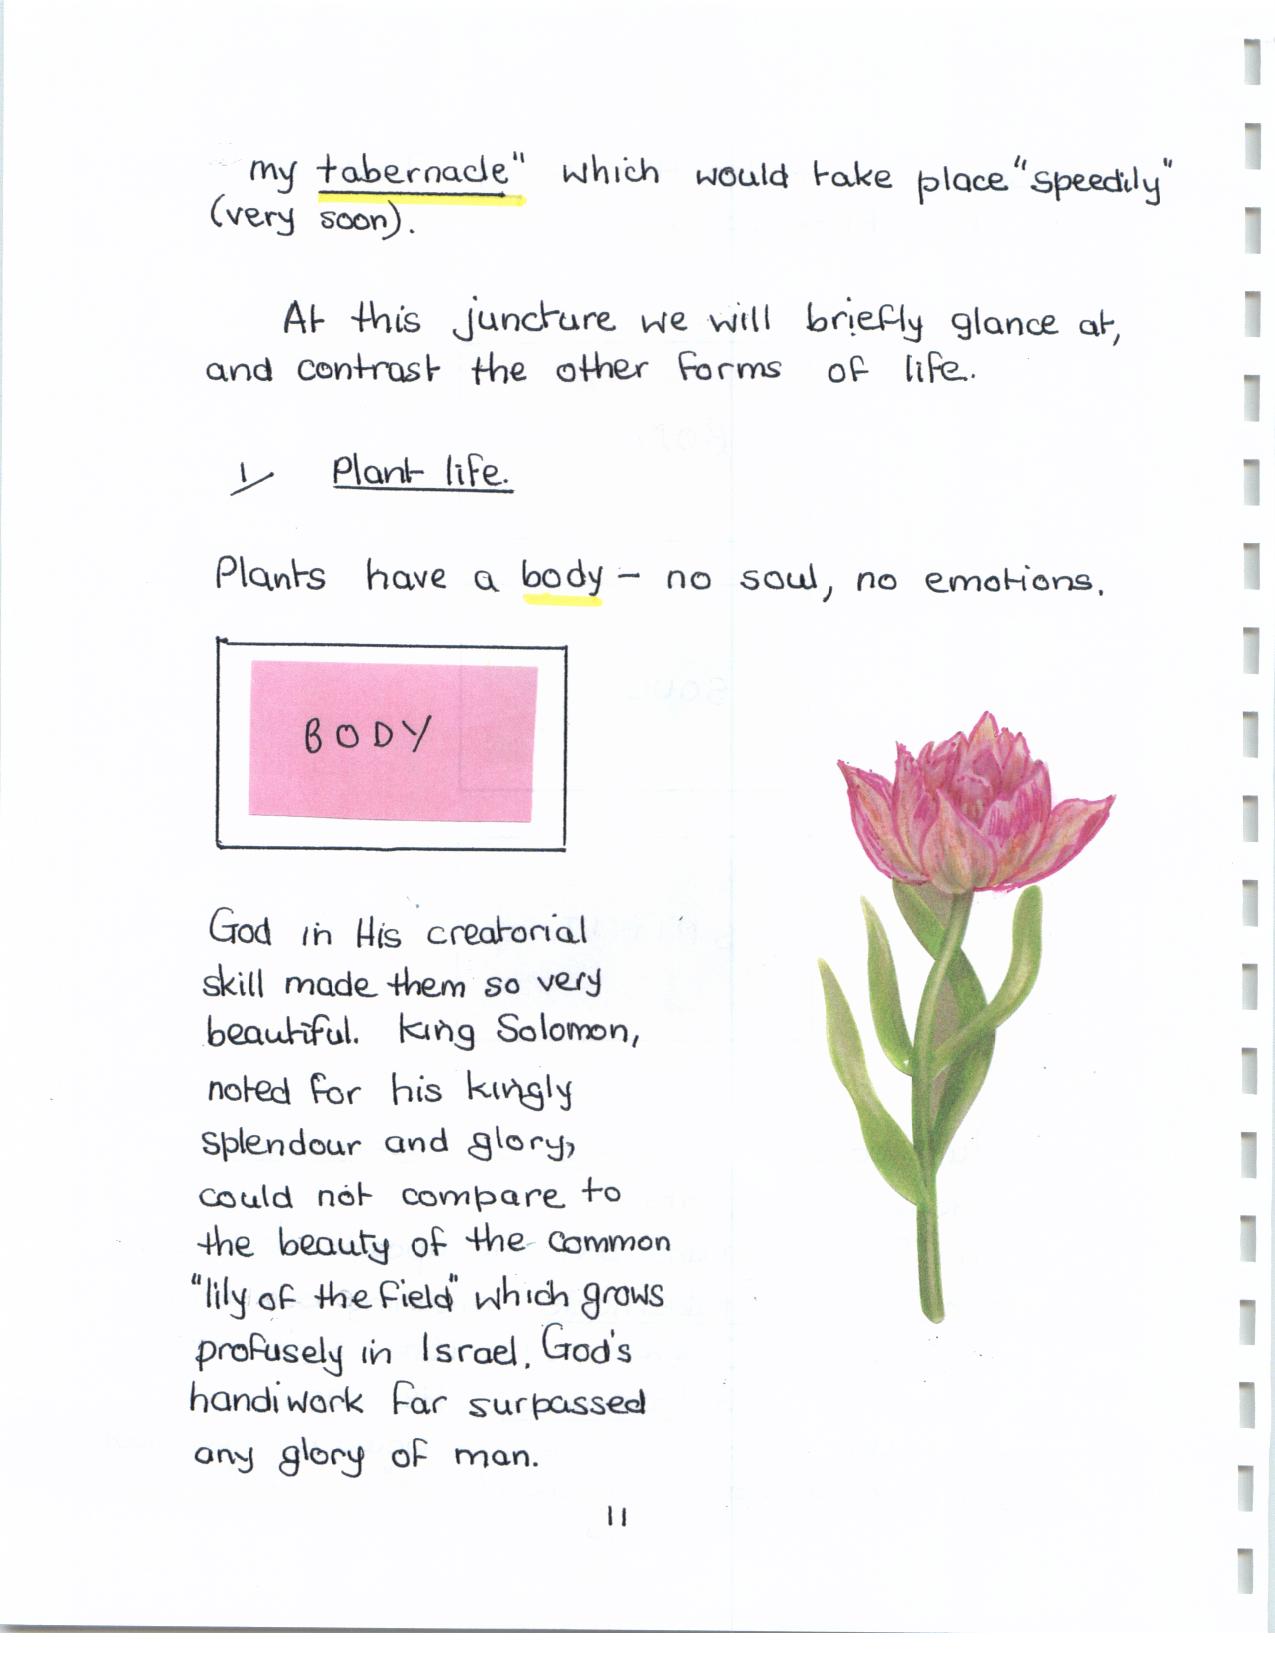 my tabernacle" which would take place "speedily"
(very soon).
At this juncture we will briefly glance at,
and contrast the other forms of life.
1/ Plant life.
Plants have a body - no soul, no emotions.
BODY
God in His creatorial
skill made them so very
beautiful. King Solomon,
noted for his kingly
splendour and glory,
could not compare to
the beauty of the common
"lily of the field" which grows
profusely in Israel. God's
handiwork far surpassed
any glory of man.
11